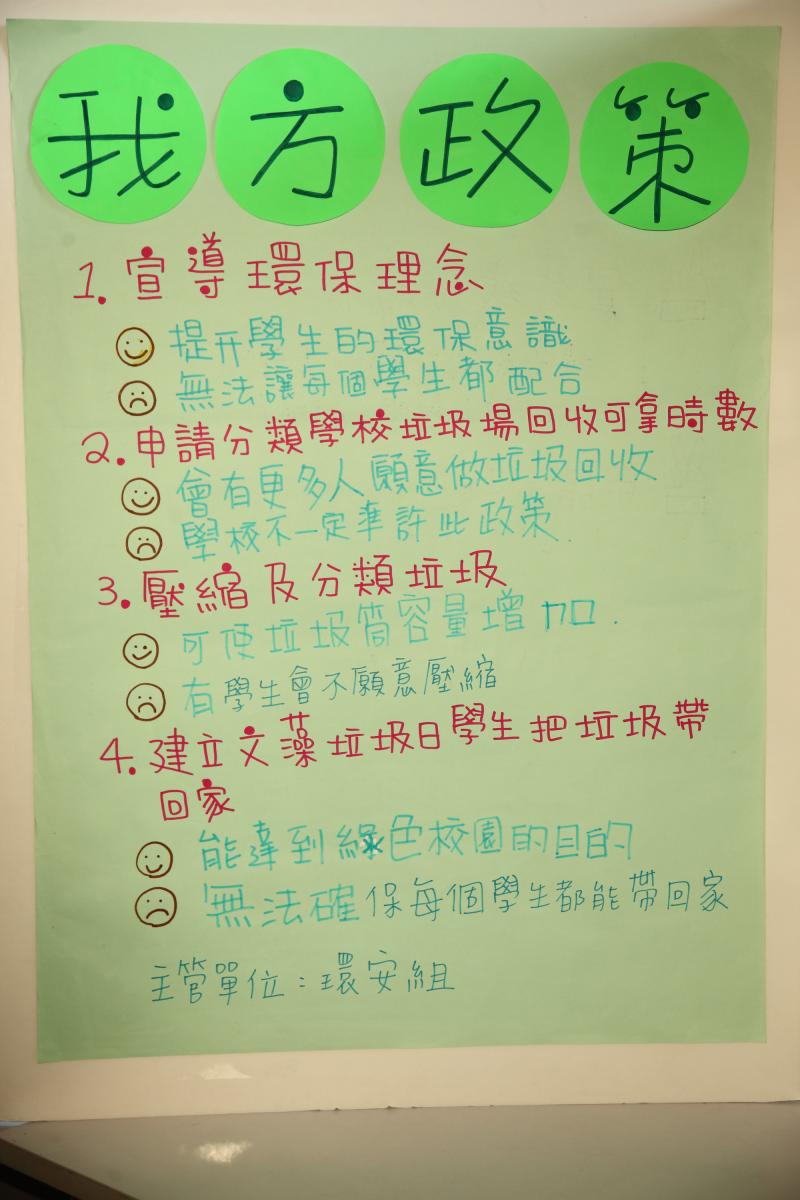 我方政策
1. 宣導環保理念
提升學生的環保意識
無法讓每個學生都配合
2. 申請分類學校垃圾場回收可拿時數
會有更多人願意做垃圾回收
學校不一定準許此政策.
3. 壓縮及分類垃圾
可使垃圾筒容量增加.
有學生會不願意壓縮
4. 建立文藻垃圾日學生把垃圾帶
回家
能達到綠色校園的目的
無法確保每個學生都能帶回家
主管單位：環安組